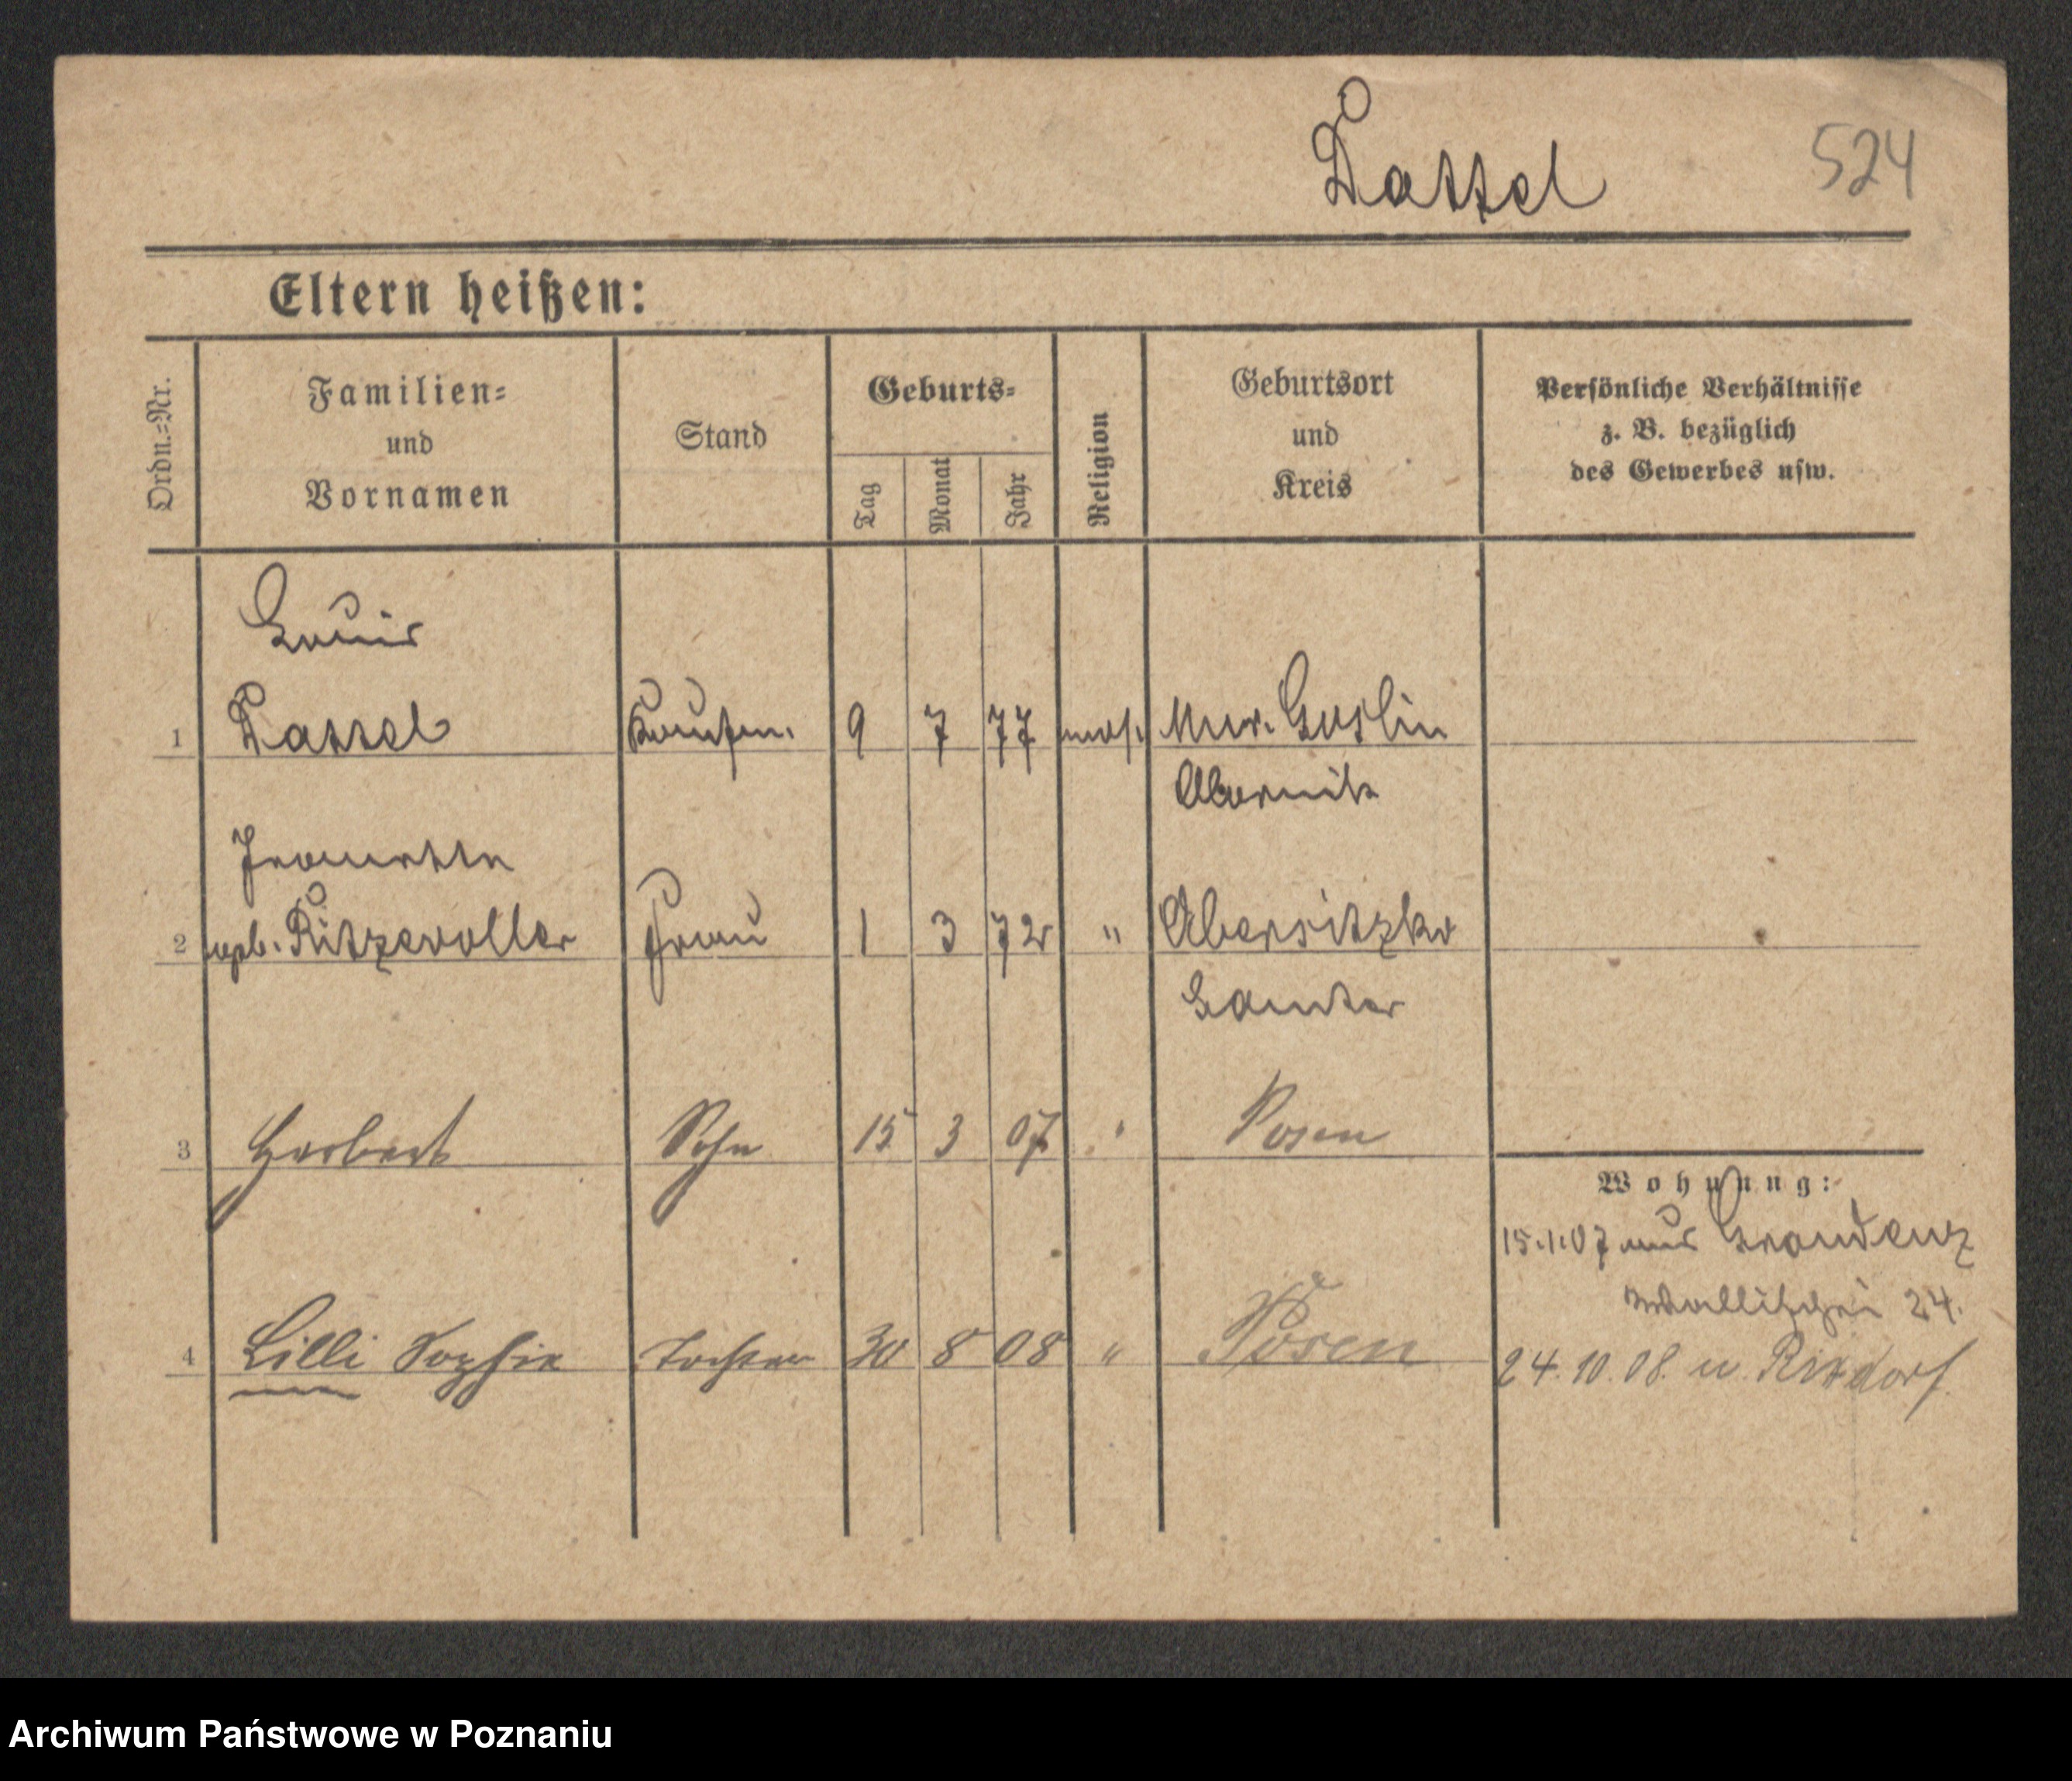 Kattel 524
Eltern heißen:
Ordn.-Nr.
Familien-
und
Vornamen
Stand
Geburts-
Tag
Monat
Jahr
Religion
Geburtsort
und
Kreis
Persönliche Verhältnisse
z. B. bezüglich
des Gewerbes usw.
Louis
1 Kattel Kaufm. 9 7 77 mos. Mur. Goslin
Obornik
Jeanette
2 geb. Ritzewoller Frau 1 3 72 " Obersitzko
Samter
3 Herbert Sohn 15 3 07 " Posen
Wohnung:
15.1.07 aus Graudenz
Wallischei 24.
4 Lilli Sophie Tochter 30 8 08 " Posen
24.10.08. n. Rixdorf.
Archiwum Państwowe w Poznaniu